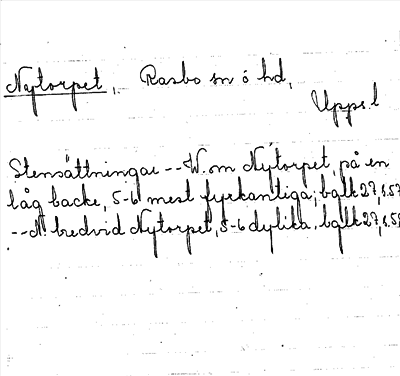 Nytorpet, Rasbo sn o hd,
Upps. l
Stensättningar -- W. om Nytorpet, på en
låg backe, 5-6 mest fyrkantiga; bglk 27, s.57
-- N. bredvid Nytorpet, 5-6 dylika. bglk 27, s.5